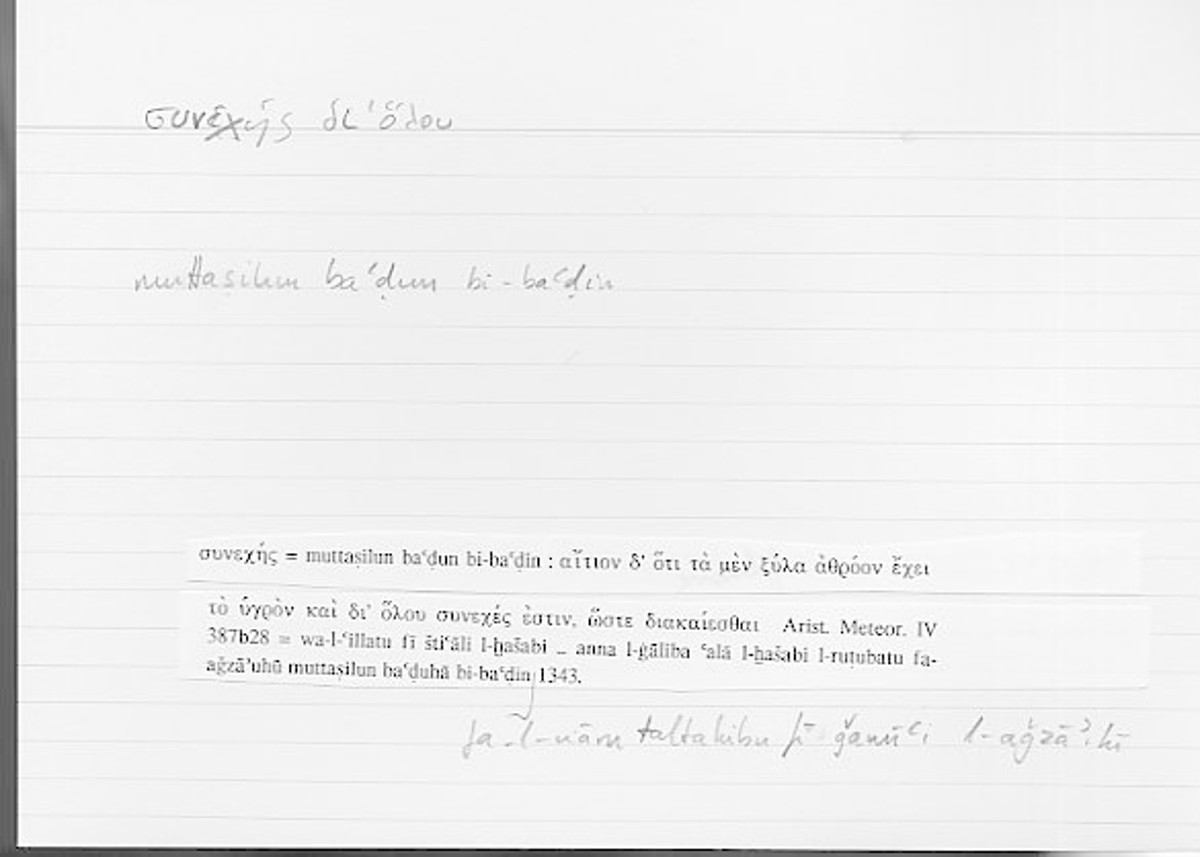 συνεχής δι' ὅλου
muttaṣilun baʿḍun bi-baʿḍin
συνεχής = muttaṣilun baʿḍun bi-baʿḍin : αἴτιον δ' ὅτι τὰ μὲν ξύλα ἀθρόον ἔχει
τὸ ὑγρὸν καὶ δι' ὅλου συνεχές ἐστιν, ὥστε διακαίεσθαι Arist. Meteor. IV
387b28 = wa-l-ʿillatu fī štiʿāli l-ḫašabi _ anna l-ġāliba ʿalā l-ḫašabi l-ruṭubatu fa-
aǧzāʾuhū muttaṣilun baʿḍuhā bi-baʿḍin 1343.
fa-l-nāru taltahibu fī ǧamīʿi l-aǧzāʾihī